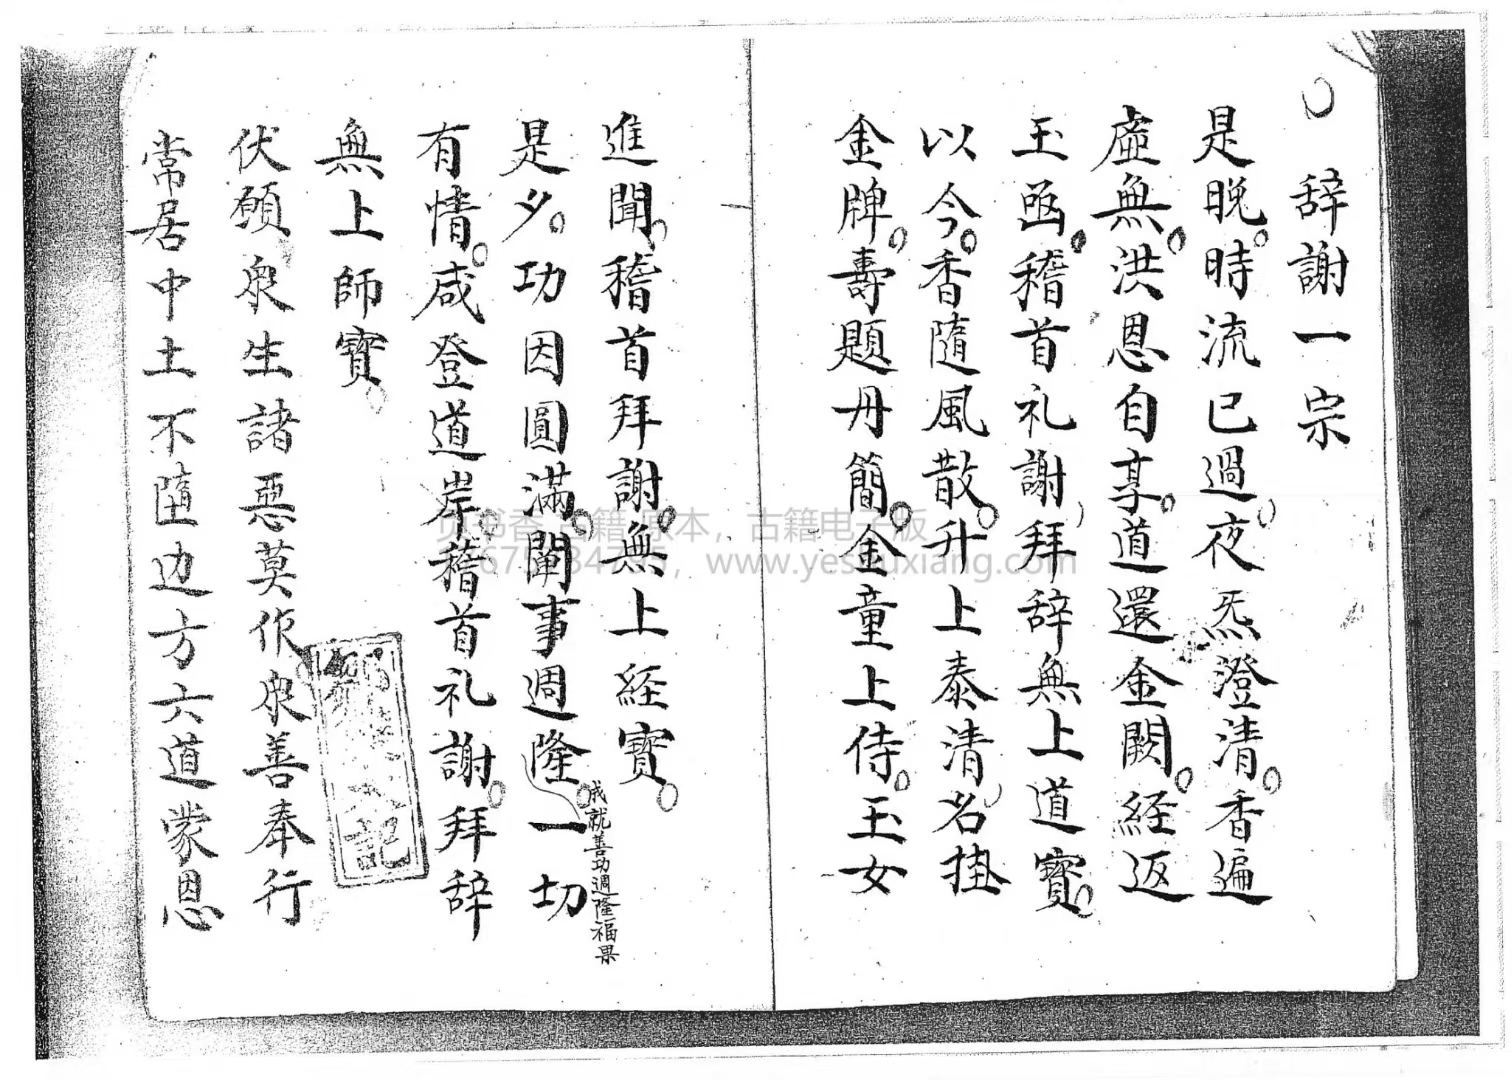 辞謝一宗
是晚。時流已過。夜炁澄清。香遍
虛無。洪恩自享。道還金闕。經返
玉函。稽首礼謝。拜辞無上道寶。
以今。香隨風散。升上泰清。名掛
金牌。壽題丹簡。金童上侍。玉女
進聞。稽首拜謝。無上経寶。
是夕。功因圓滿。闡事週隆。一切
成就善功週隆福果
有情。咸登道岸。稽首礼謝。拜辞
無上師寶。
伏願眾生諸惡莫作眾善奉行
常居中土不墮边方六道蒙恩
古籍原本，古籍电子版
www.yeshuxiang.com